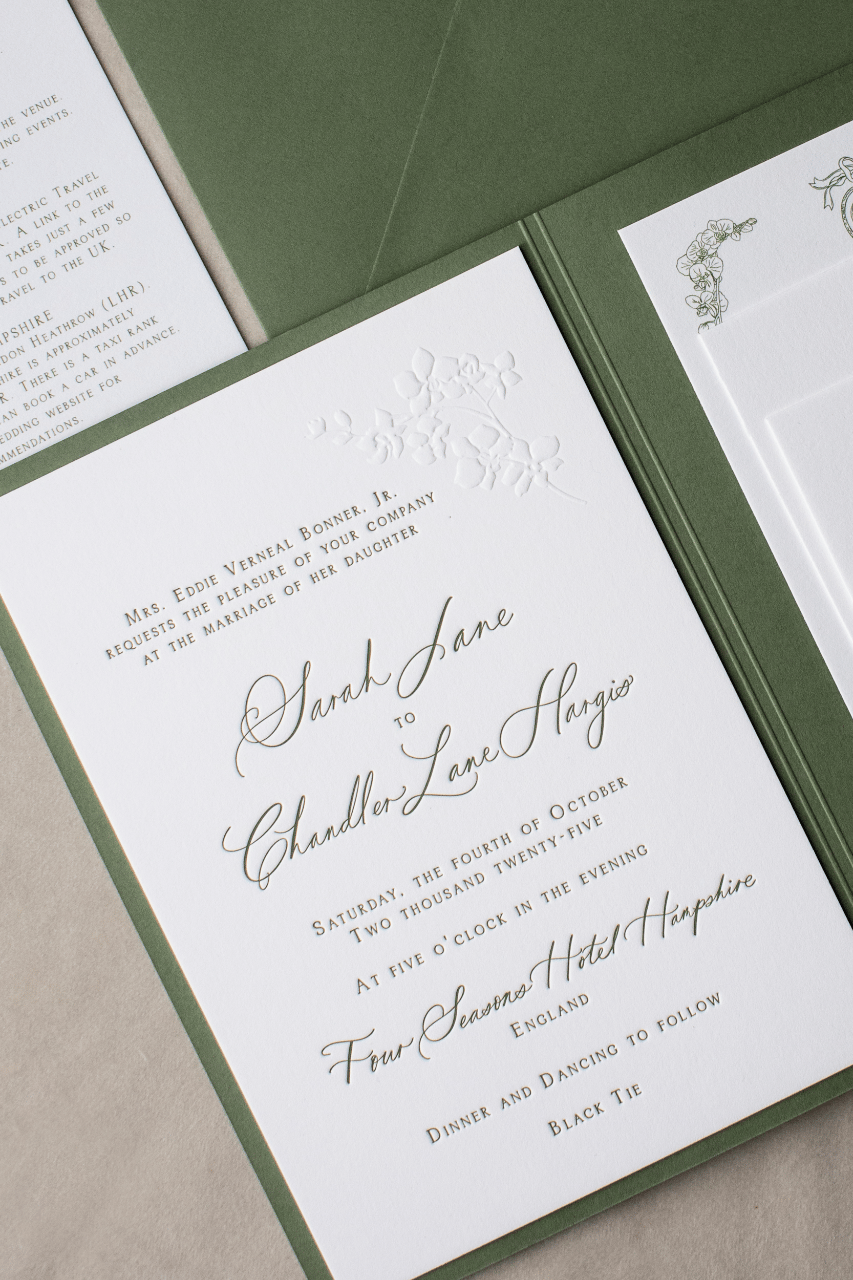 HE VENUE.
ING EVENTS.
LECTRIC TRAVEL
A. A LINK TO THE
TAKES JUST A FEW
S TO BE APPROVED SO
RAVEL TO THE UK.
MPSHIRE
DON HEATHROW (LHR).
HIRE IS APPROXIMATELY
R. THERE IS A TAXI RANK
AN BOOK A CAR IN ADVANCE.
EDDING WEBSITE FOR
MMENDATIONS.
MRS. EDDIE VERNEAL BONNER, JR.
REQUESTS THE PLEASURE OF YOUR COMPANY
AT THE MARRIAGE OF HER DAUGHTER
Sarah Jane
TO
Chandler Lane Hargis
SATURDAY, THE FOURTH OF OCTOBER
TWO THOUSAND TWENTY-FIVE
AT FIVE O'CLOCK IN THE EVENING
Four Seasons Hotel Hampshire
ENGLAND
DINNER AND DANCING TO FOLLOW
BLACK TIE